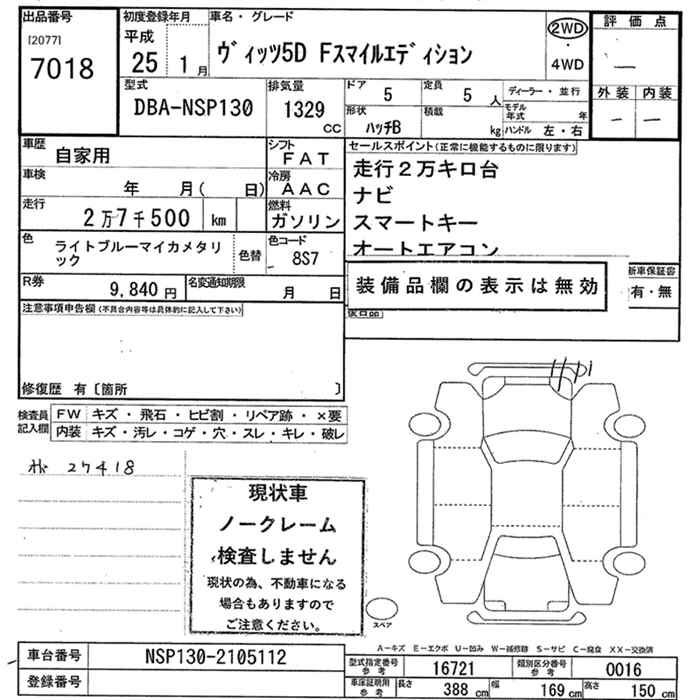 出品番号
[2077]
7018
初度登録年月
平成
25 1 月
車名・グレード
ヴィッツ5D Fスマイルエディション
2WD
・
4WD
評価点
—
外装 内装
— —
型式
DBA-NSP130
排気量
1329
CC
ドア 5
定員 5 人
ディーラー・並行
形状
ハッチB
積載
kg
モデル年式 年
ハンドル 左・右
車歴
自家用
シフト
FAT
車検
年 月( 日)
冷房
AAC
走行
2万7千500 km
燃料
ガソリン
色
ライトブルーマイカメタリ
ック
色替
色コード
8S7
R券
9,840 円
名変通知期限
月 日
セールスポイント(正常に機能するものに限ります)
走行2万キロ台
ナビ
スマートキー
オートエアコン
装備品欄の表示は無効
新車保証書
有・無
注意事項申告欄(不具合内容等は具体的に記入して下さい)
修復歴 有〔箇所 〕
検査員
記入欄
FW キズ・飛石・ヒビ割・リペア跡・×要
内装 キズ・汚レ・コゲ・穴・スレ・キレ・破レ
27418
現状車
ノークレーム
検査しません
現状の為、不動車になる
場合もありますので
ご注意ください。
スペア
A-キズ E-エクボ U-凹み W-補修跡 S-サビ C-腐食 XX-交換済
車台番号
NSP130-2105112
登録番号
型式指定番号
参考
16721
類別区分番号
参考
0016
車保証明用
参考
長さ 388 cm
幅 169 cm
高さ 150 cm